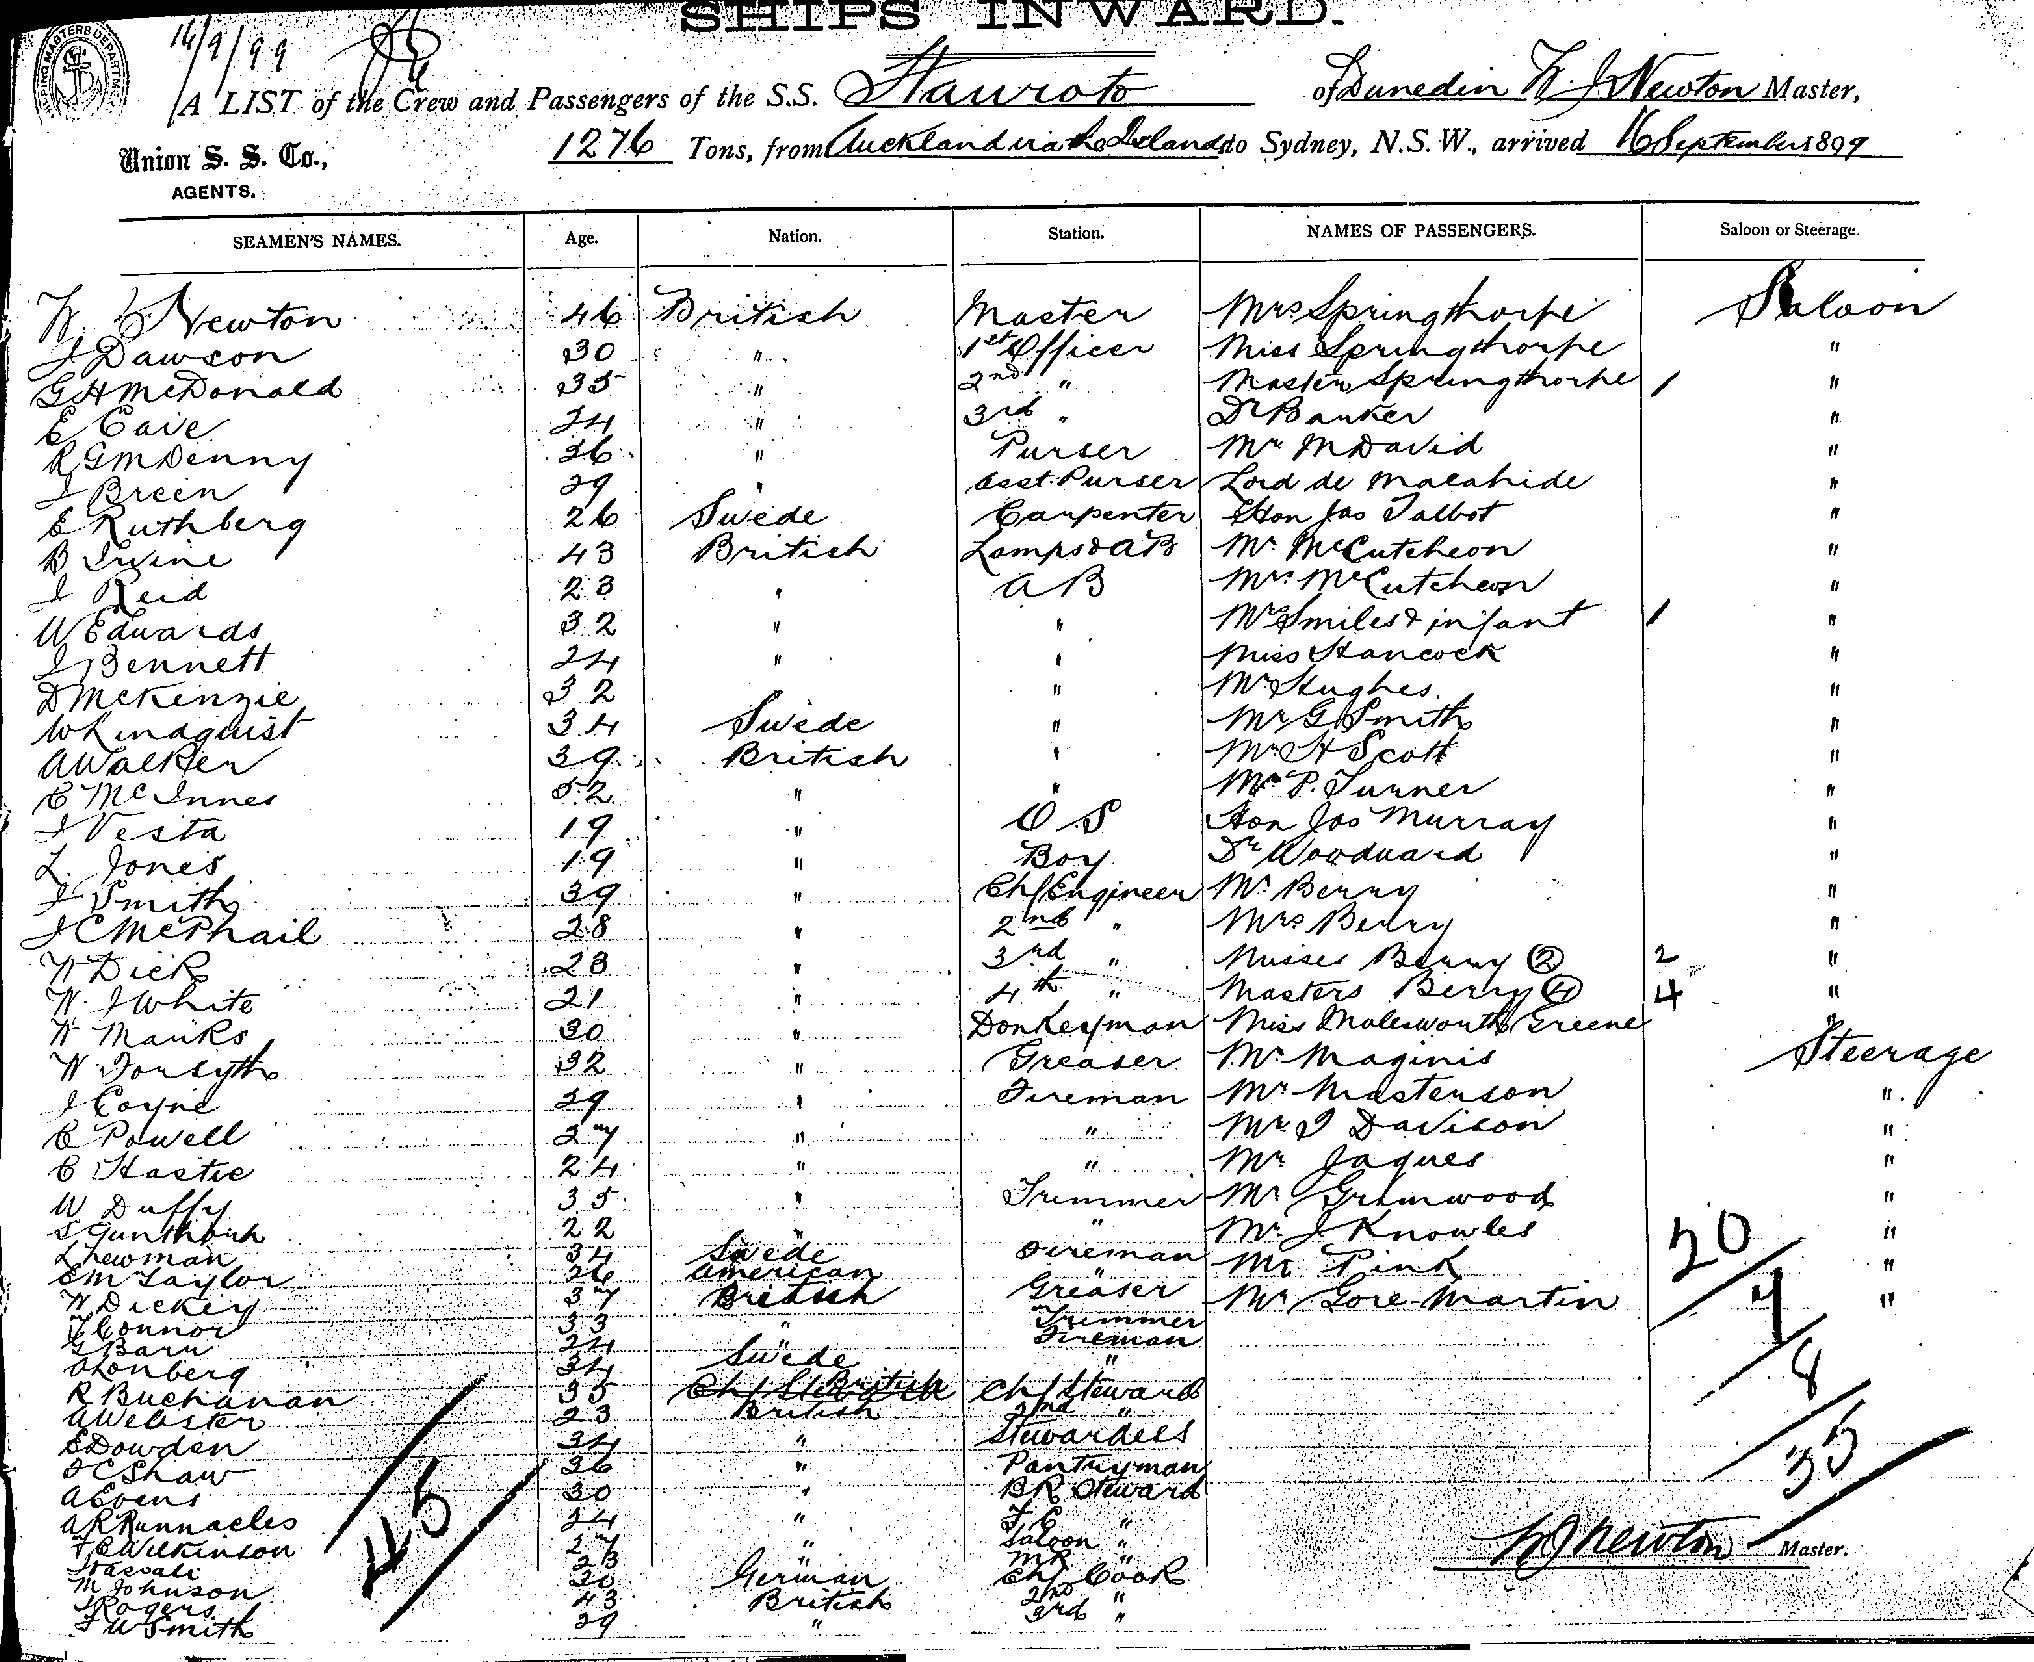 SHIPS INWARD.
16/9/99
SHIPPING MASTERS DEPARTMENT
A LIST of the Crew and Passengers of the S.S. Hauroto of Dunedin W. J. Newton Master,
Union S. S. Co., 1276 Tons, from Auckland via the Islands to Sydney, N.S.W., arrived 16 September 1899
AGENTS.
SEAMEN'S NAMES. Age. Nation. Station. NAMES OF PASSENGERS. Saloon or Steerage.
W. J Newton 46 British Master Mrs Springthorpe Saloon
J Dawson 30 " 1st Officer Miss Springthorpe "
G H McDonald 35 " 2nd " Master Springthorpe 1 "
E Cave 24 " 3rd " Dr Banker "
R G M Denny 26 " Purser Mr M David "
J Breen 29 " Asst. Purser Lord de Malahide "
E Ruthberg 26 Swede Carpenter Hon Jas Talbot "
B Irvine 43 British Lamps & AB Mr McCutcheon "
J Reid 23 " AB Mrs McCutcheon "
W Edwards 32 " " Mrs Smiles & infant 1 "
J Bennett 24 " " Miss Hancock "
D McKenzie 32 " Mr Hughes "
W Lindquist 34 Swede " Mr G Smith "
A Walker 39 British " Mr H Scott "
C McInnes 52 " " Mr P. Turner "
J Vesta 19 " O S Hon Jas Murray "
L. Jones 19 " Boy Dr Woodward "
J Smith 39 " Chf Engineer Mr Berry "
J C McPhail 28 " 2nd " Mrs Berry "
W Dick 23 " 3rd " Misses Berry (2) 2 "
W. J White 21 " 4th " Masters Berry (4) 4 "
W Manks 30 " Donkeyman Miss Molesworth Greene "
W. Forsyth 32 " Greaser Mr Maginis Steerage
J Coyne 29 " Fireman Mr Mastenson "
C Powell 27 " " Mr J Davison "
C Hastie 24 " " Mr Jaques "
W Duffy 35 " Trimmer Mr Grimwood "
S 22 " " Mr J Knowles "
L Newman 34 Swede Fireman Mr Pink "
E M Taylor 26 American " Mr Gore-Martin "
W Dickey 37 British Greaser
T Connor 33 " Trimmer
G Barn 24 " Fireman
O Lonberg 34 Swede "
R Buchanan 35 British Chf Steward
A Webster 23 British 2nd "
E Dowden 34 " Stewardess
J C Shaw 36 " Pantryman
A Evens 30 " BR Steward
A R Runnacles 24 " F. C "
F C Wilkinson 27 " Saloon "
Hassall 23 " MR "
M Johnson 30 German Chf Cook
J Rogers 43 British 2nd "
F W Smith 29 " 3rd "
45
20/7/8/35
W J Newton Master.